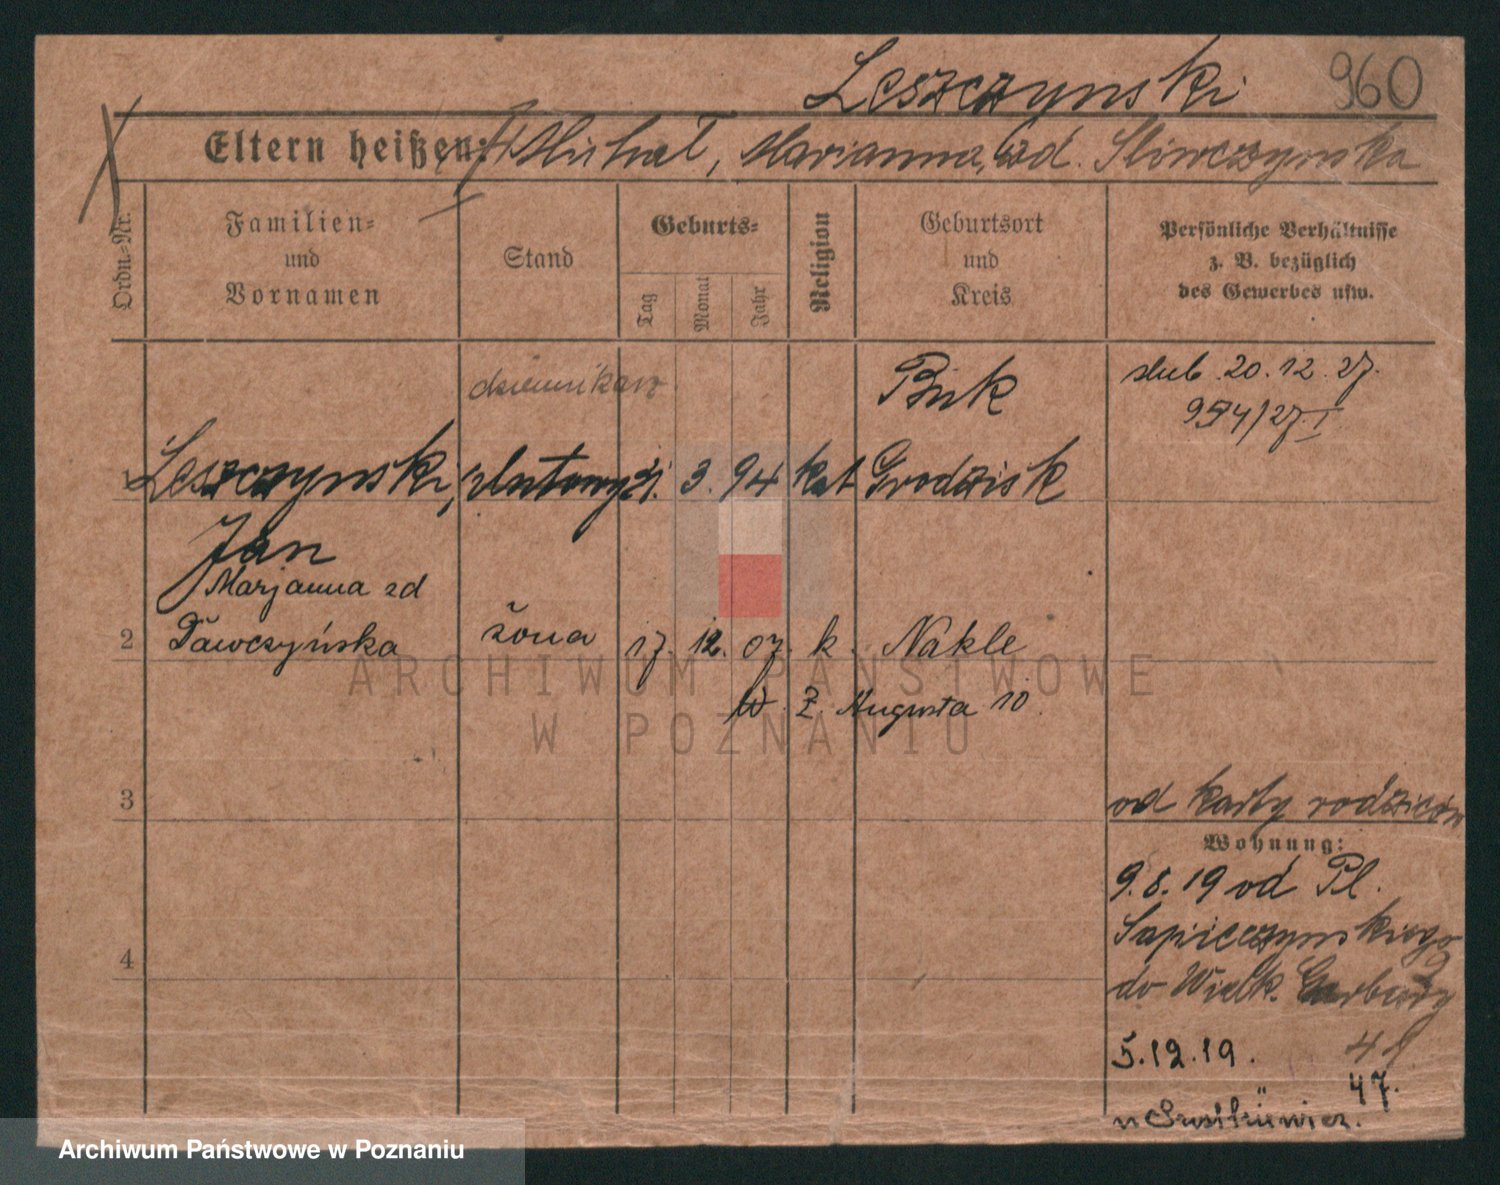 Leszczynski 960
Eltern heißen: Michał, Marianna, zd. Sliwczynska
Ordn.-Nr.
Familien-
und
Vornamen
Stand
Geburts-
Tag
Monat
Jahr
Religion
Geburtsort
und
Kreis
Persönliche Verhältnisse
z. B. bezüglich
des Gewerbes usw.
dziennikarz Buk slub 20.12.27.
954/27 I
1 Leszczynski, Antony 21. 3. 94 kat Grodzisk
Jan
Marjanna zd
2 Pawczyńska żona 17. 12. 07. k. Nakle
W. Z. Augusta 10
3
od karty rodziców
Wohnung:
9.8.19 od Pl.
Sapieczynskiego
4
do Wielk. Garbary
41
5.12.19.
47.
ARCHIWUM PAŃSTWOWE
W POZNANIU
Archiwum Państwowe w Poznaniu